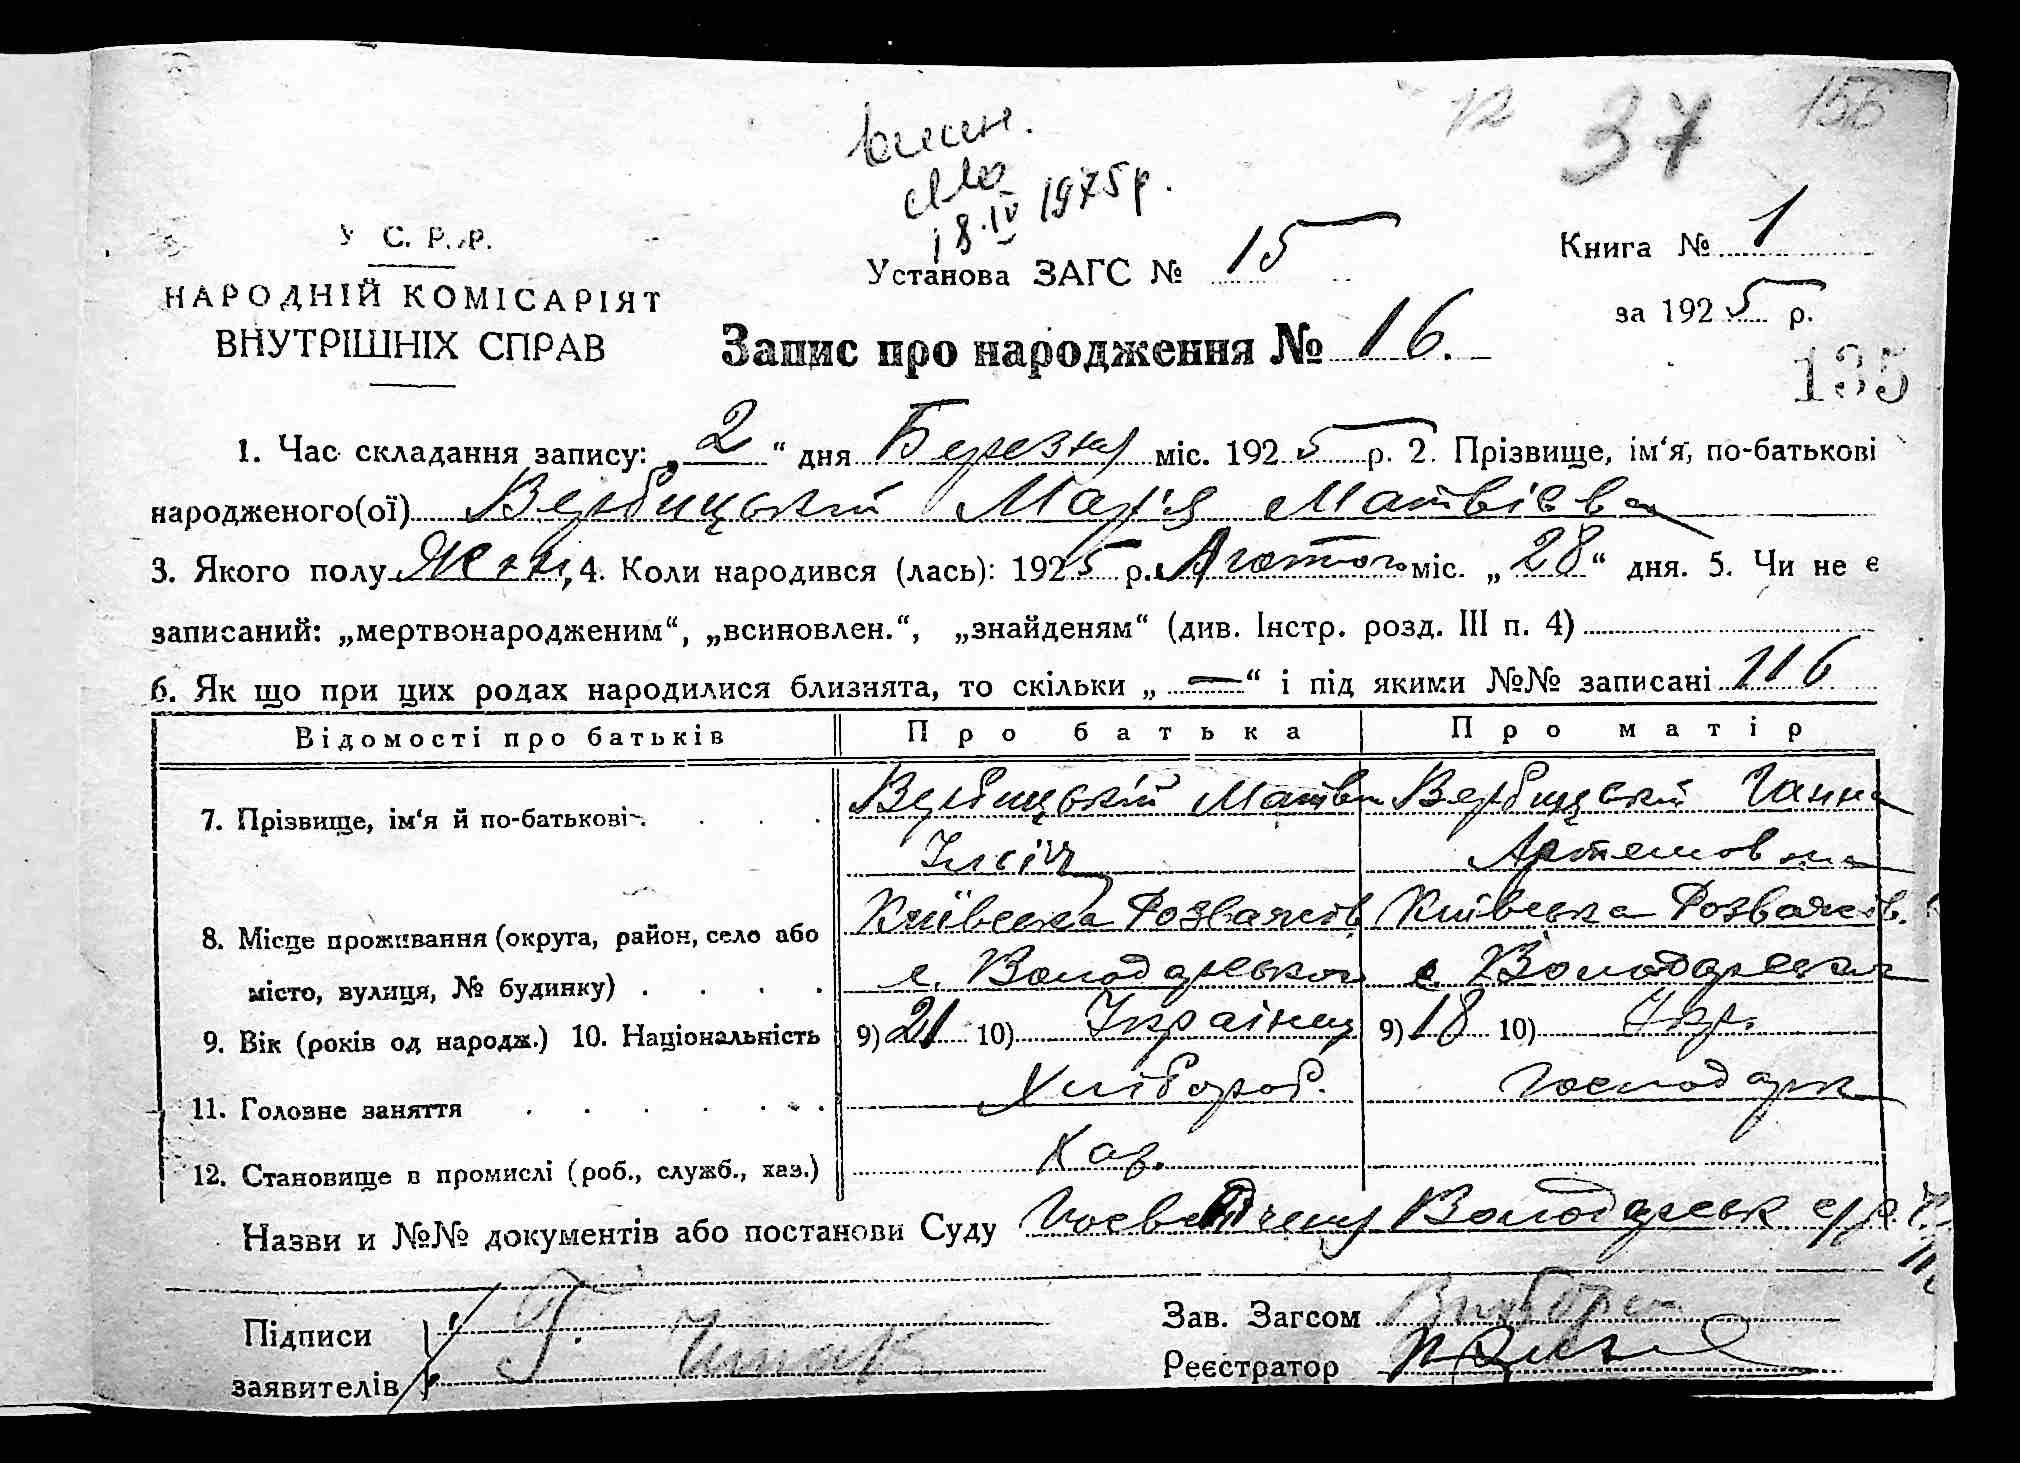 12 37 156
18.IV 1975 р.
У С. Р. Р.
НАРОДНІЙ КОМІСАРІЯТ
ВНУТРІШНІХ СПРАВ
Установа ЗАГС № 15
Книга № 1
за 1925 р.
Запис про народження № 16.
135
1. Час складання запису: „2“ дня Березня міс. 1925 р. 2. Прізвище, ім‘я, по-батькові
народженого(ої) Вербицькій Марія Матвієва
3. Якого полу Жен., 4. Коли народився (лась): 1925 р. Лютого міс. „28“ дня. 5. Чи не є
записаний: „мертвонародженим“, „всиновлен.“, „знайденям“ (див. Інстр. розд. III п. 4)
6. Як що при цих родах народилися близнята, то скільки „—“ і під якими №№ записані 116
Відомості про батьків Про батька Про матір
7. Прізвище, ім‘я й по-батькові Вербицькій Матви Вербицькій Ганна
Ілсіч Артемовна
8. Місце проживання (округа, район, село або Київська Розважів Київська Розважів.
місто, вулиця, № будинку) с. Володарською с. Володарська
9. Вік (років од народж.) 10. Національність 9) 21 10) Українец 9) 18 10) Укр.
11. Головне заняття Хлібороб. Господарк
12. Становище в промислі (роб., служб., хаз.) Хаз.
Назви и №№ документів або постанови Суду Володарськ с/р
Підписи Зав. Загсом
заявителів Реєстратор